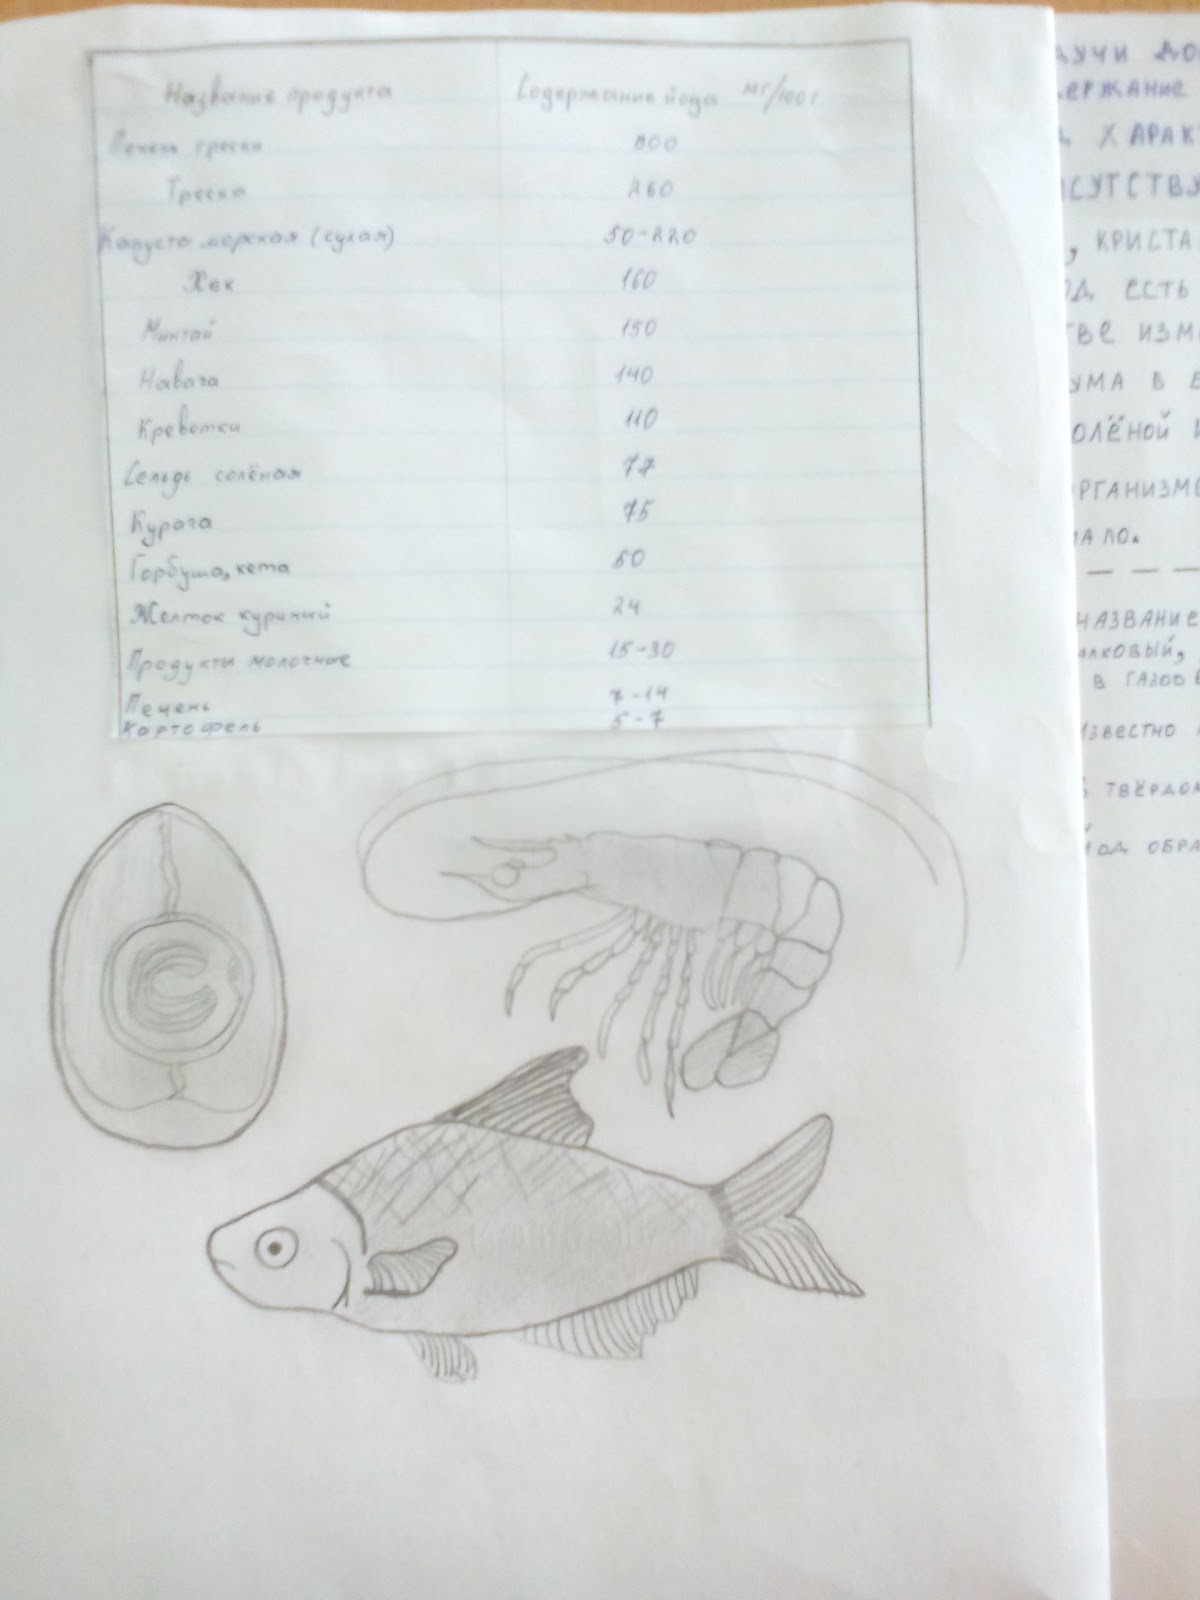 Название продукта Содержание йода мг/100г
Печень трески 800
Треска 260
Капуста морская (сухая) 50-220
Хек 160
Минтай 150
Навага 140
Креветки 110
Сельдь солёная 77
Курага 75
Горбуша, кета 50
Желток куриный 24
Продукты молочные 15-30
Печень 7-14
Картофель 5-7
АУЧИ ДО
ЕРЖАНИЕ
ХАРАК
СУТСТВУ
, КРИСТА
ОД ЕСТЬ
ТВЕ ИЗМ
УМА В В
ОЛЁНОЙ И
РГАНИЗМО
МАЛО.
— — —
НАЗВАНИЕ
АЛКОВЫЙ,
В ГАЗОО
ИЗВЕСТНО
ТВЁРДОМ
ЙОД ОБРА